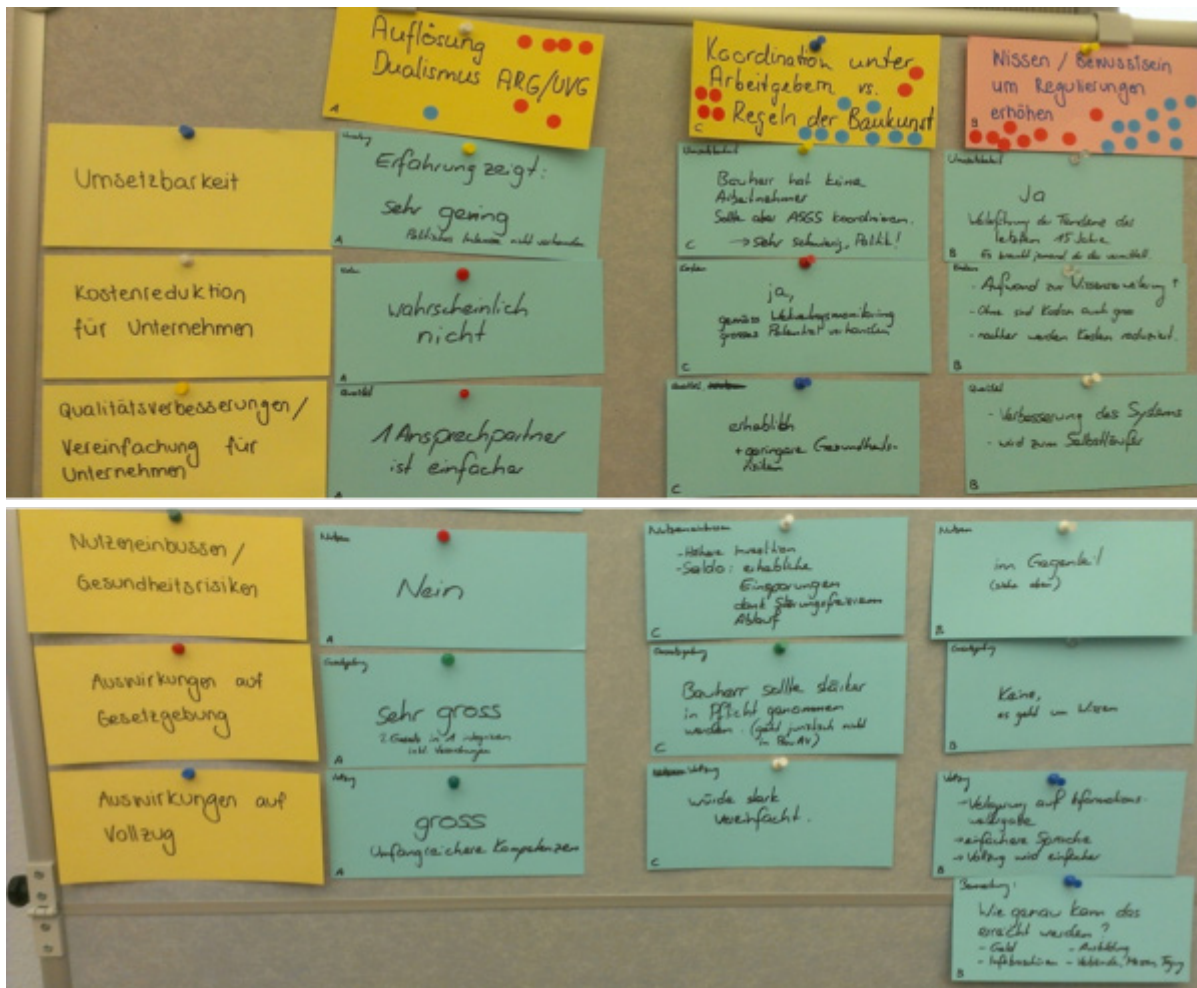 Auflösung
Dualismus ARG/UVG
A
Koordination unter
Arbeitgebern vs.
Regeln der Baukunst
C
Wissen / Bewusstsein
um Regulierungen
erhöhen
B
Umsetzbarkeit
Erfahrung zeigt:
sehr gering
Politisches Interesse nicht vorhanden
A
Bauherr hat keine
Arbeitnehmer
Sollte aber ASGS koordinieren.
→ Sehr schwierig, Politik!
C
Ja
Weiterführung der Tendenz der
letzten 15 Jahre
Es braucht jemand der das vermittelt.
B
Kostenreduktion
für Unternehmen
Kosten
wahrscheinlich
nicht
A
Kosten
ja,
gemäss
grosses Potential vorhanden
C
Kosten
- Aufwand zur Wissenserweiterung ↑
- Ohne sind Kosten auch gross
- nachher werden Kosten reduziert.
B
Qualitätsverbesserungen/
Vereinfachung für
Unternehmen
Qualität
1 Ansprechpartner
ist einfacher
A
Qualität
erheblich
+ geringere Gesundheits-
risiken
C
Qualität
- Verbesserung des Systems
- wird zum Selbstläufer
B
Nutzeneinbussen/
Gesundheitsrisiken
Nutzen
Nein
A
Nutzeneinbussen
- Höhere Investition
- Saldo: erhebliche
Einsparungen
dank störungsfreierem
Ablauf
C
Nutzen
im Gegenteil
(siehe oben)
B
Auswirkungen auf
Gesetzgebung
Gesetzgebung
Sehr gross
2 Gesetze in 1 integrieren
inkl. Verordnungen
A
Gesetzgebung
Bauherr sollte stärker
in Pflicht genommen
werden. (geht juristisch nicht
in BauAV)
C
Gesetzgebung
Keine,
es geht um Wissen
B
Auswirkungen auf
Vollzug
Vollzug
gross
Umfangreichere Kompetenzen
A
Vollzug
würde stark
vereinfacht.
C
Vollzug
→ Verlagerung auf Informations-
weitergabe
→ einfachere Sprache
→ Vollzug wird einfacher
B
Bemerkung:
Wie genau kann das
erreicht werden?
- Geld - Ausbildung
- Infobroschüren - Verbände, Messen, Tagung
B